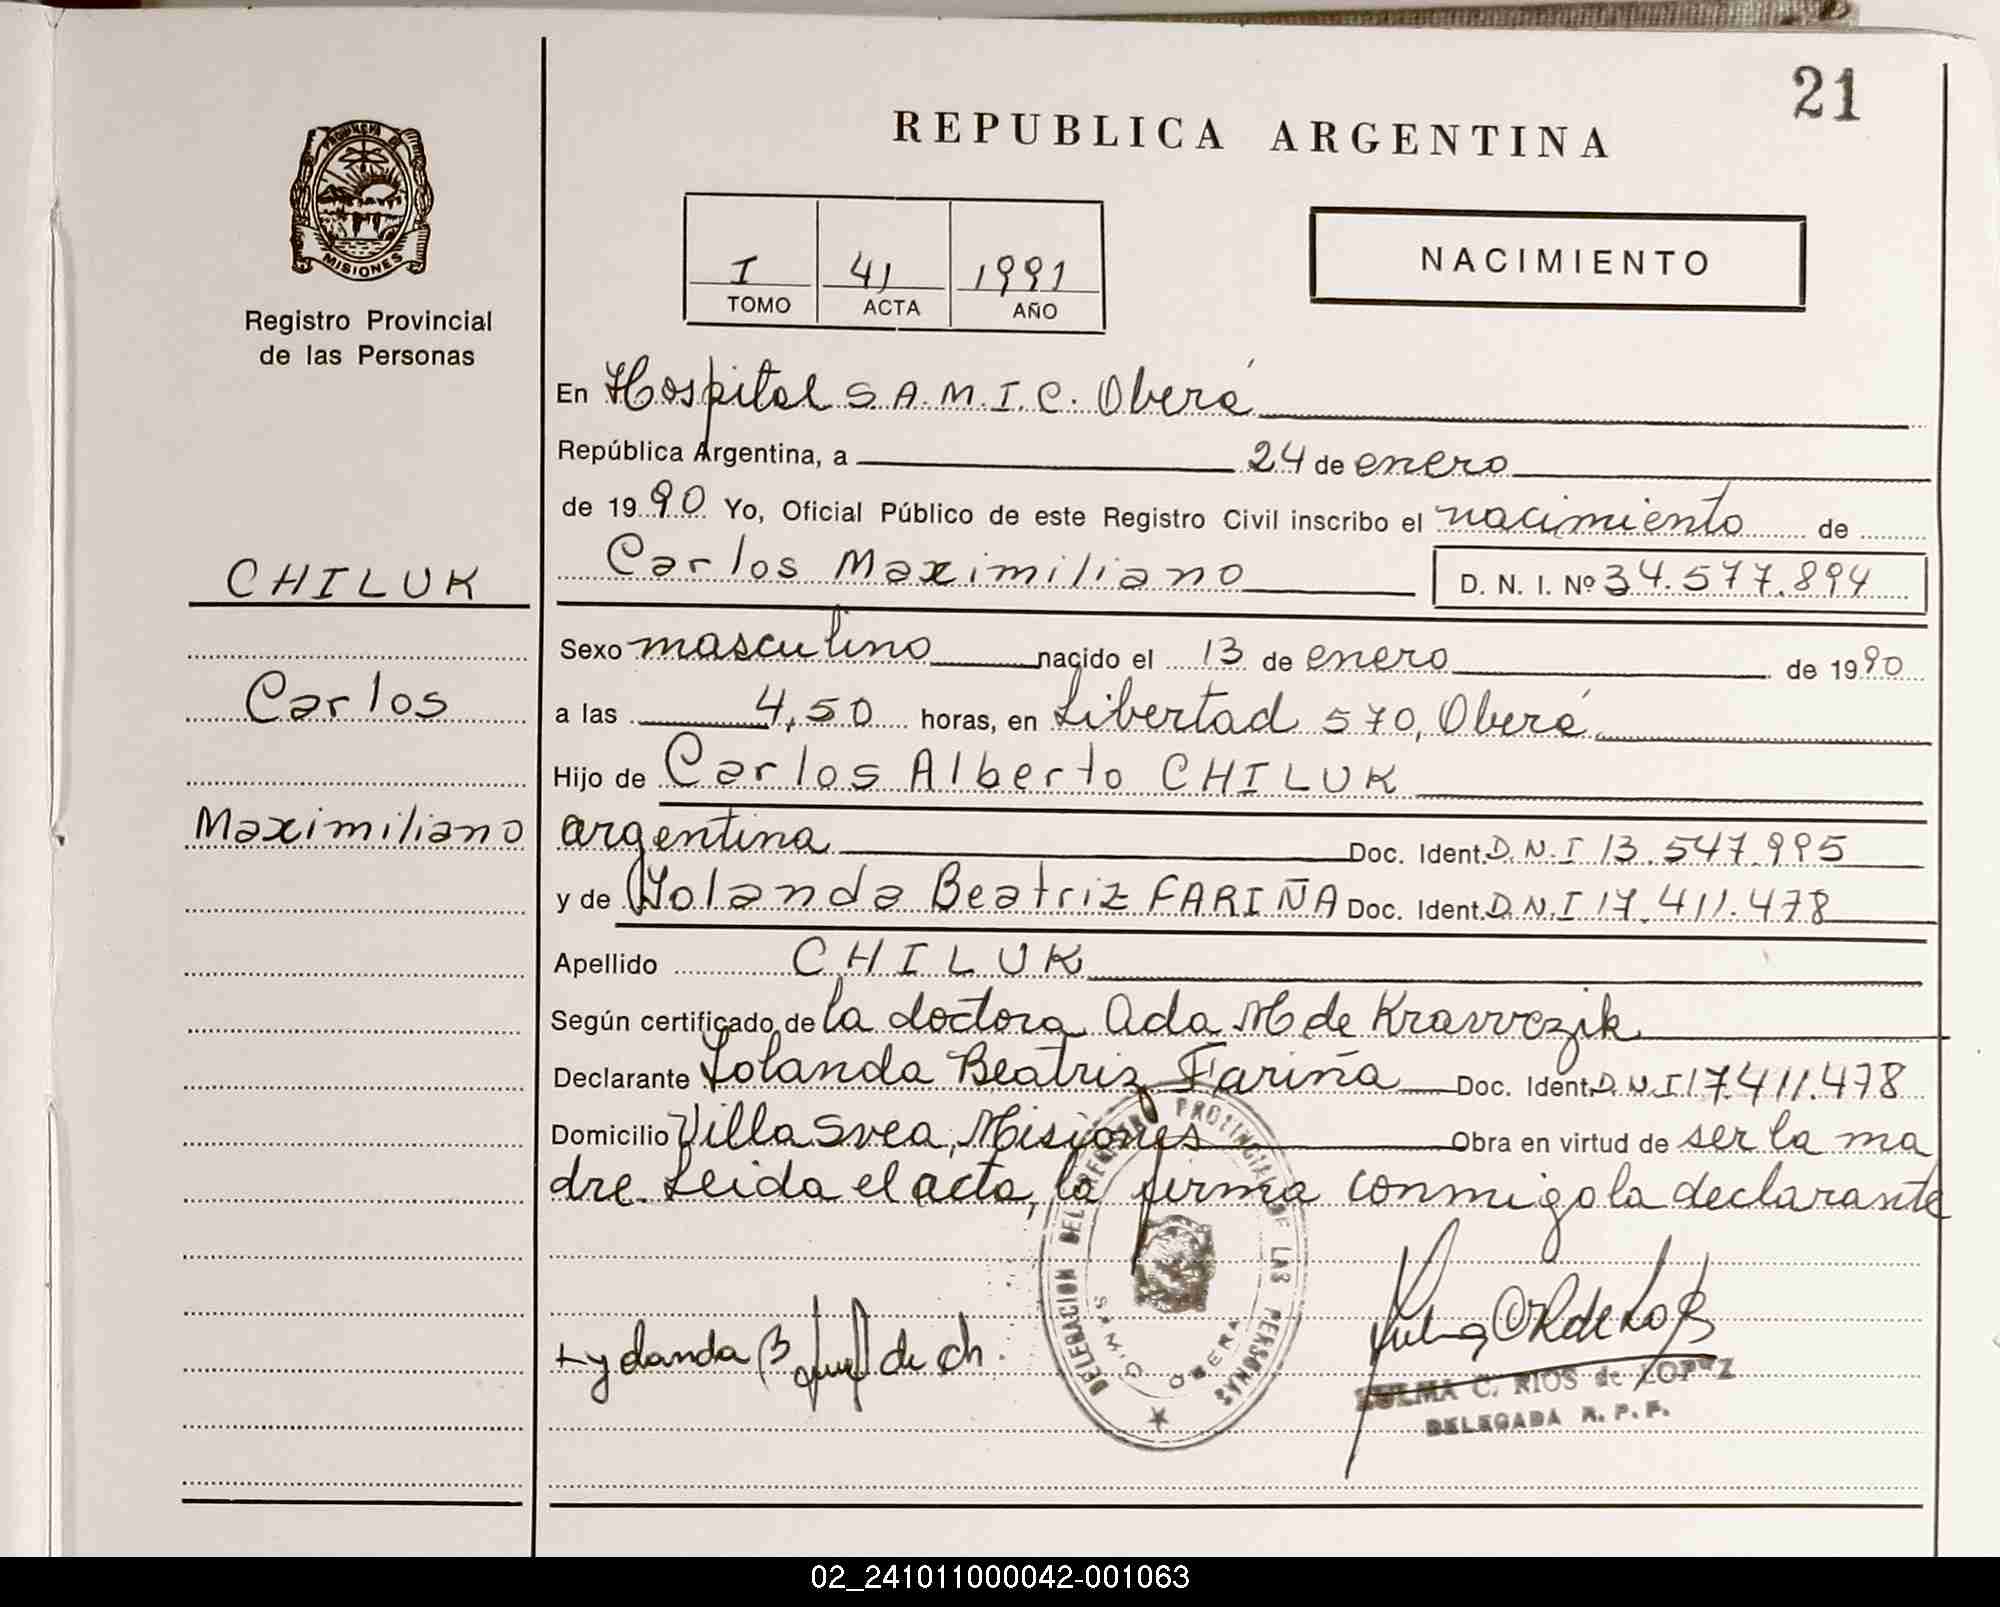 21
REPUBLICA ARGENTINA
PROVINCIA DE
MISIONES
Registro Provincial
de las Personas
I 41 1991
TOMO ACTA AÑO
NACIMIENTO
En Hospital S.A.M.I.C. Oberá
República Argentina, a 24 de enero
de 1990 Yo, Oficial Público de este Registro Civil inscribo el nacimiento de
CHILUK
Carlos Maximiliano D. N. I. Nº 34.577.894
Sexo masculino nacido el 13 de enero de 1990
Carlos
a las 4,50 horas, en Libertad 570, Oberá
Hijo de Carlos Alberto CHILUK
Maximiliano
argentina Doc. Ident. D.N.I 13.547.995
y de Yolanda Beatriz FARIÑA Doc. Ident. D.N.I 17.411.478
Apellido CHILUK
Según certificado de la doctora Ada M de Kravvczik
Declarante Yolanda Beatriz Fariña Doc. Ident. D.N.I 17.411.478
Domicilio Villa Svea, Misiones Obra en virtud de ser la ma
dre. Leida el acta, la firma conmigo la declarante
DELEGACION DEL REGISTRO PROVINCIAL DE LAS PERSONAS
OBERA
de ch.
ZULMA C. RIOS de LOPEZ
DELEGADA R. P. P.
02_241011000042-001063